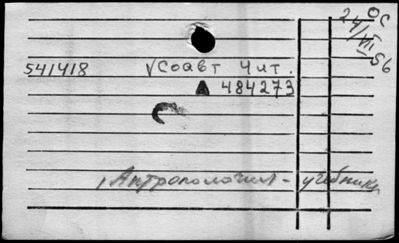 ОС
24/VII 56
541418 √Соавт Чит.
А 484273
Антропология - учебники